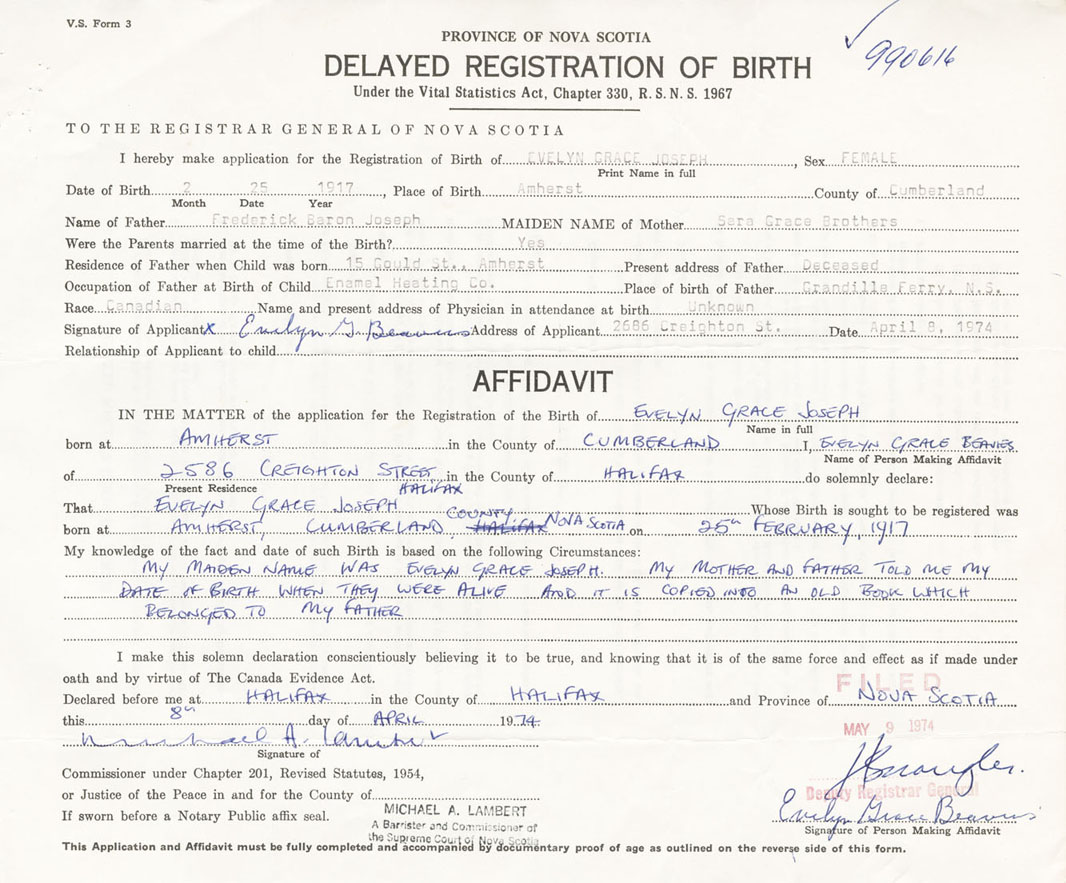 V.S. Form 3
990616
PROVINCE OF NOVA SCOTIA
DELAYED REGISTRATION OF BIRTH
Under the Vital Statistics Act, Chapter 330, R. S. N. S. 1967
TO THE REGISTRAR GENERAL OF NOVA SCOTIA
I hereby make application for the Registration of Birth of EVELYN GRACE JOSEPH, Sex FEMALE
Print Name in full
Date of Birth 2 25 1917, Place of Birth Amherst County of Cumberland
Month Date Year
Name of Father Frederick Baron Joseph MAIDEN NAME of Mother Sara Grace Brothers
Were the Parents married at the time of the Birth? Yes
Residence of Father when Child was born 15 Gould St., Amherst Present address of Father Deceased
Occupation of Father at Birth of Child Enamel Heating Co. Place of birth of Father Grandille Ferry, N.S.
Race Canadian Name and present address of Physician in attendance at birth Unknown
Signature of Applicant X Evelyn G. Beavns Address of Applicant 2686 Creighton St. Date April 8, 1974
Relationship of Applicant to child
AFFIDAVIT
IN THE MATTER of the application for the Registration of the Birth of EVELYN GRACE JOSEPH
Name in full
born at AMHERST in the County of CUMBERLAND I, EVELYN GRACE BEAVIES
Name of Person Making Affidavit
of 2586 CREIGHTON STREET, in the County of HALIFAX do solemnly declare:
Present Residence HALIFAX
That EVELYN GRACE JOSEPH Whose Birth is sought to be registered was
born at AMHERST, CUMBERLAND COUNTY HALIFAX NOVA SCOTIA on 25th FEBRUARY, 1917
My knowledge of the fact and date of such Birth is based on the following Circumstances:
MY MAIDEN NAME WAS EVELYN GRACE JOSEPH. MY MOTHER AND FATHER TOLD ME MY
DATE OF BIRTH WHEN THEY WERE ALIVE AND IT IS COPIED INTO AN OLD BOOK WHICH
BELONGED TO MY FATHER
I make this solemn declaration conscientiously believing it to be true, and knowing that it is of the same force and effect as if made under
oath and by virtue of The Canada Evidence Act.
FILED
Declared before me at HALIFAX in the County of HALIFAX and Province of NOVA SCOTIA
this 8th day of APRIL 1974
MAY 9 1974
Michael A. Lambert
Signature of
Commissioner under Chapter 201, Revised Statutes, 1954,
or Justice of the Peace in and for the County of
Deputy Registrar General
If sworn before a Notary Public affix seal.
MICHAEL A. LAMBERT
A Barrister and Commissioner of
the Supreme Court of Nova Scotia
Evelyn Grace Beavns
Signature of Person Making Affidavit
This Application and Affidavit must be fully completed and accompanied by documentary proof of age as outlined on the reverse side of this form.